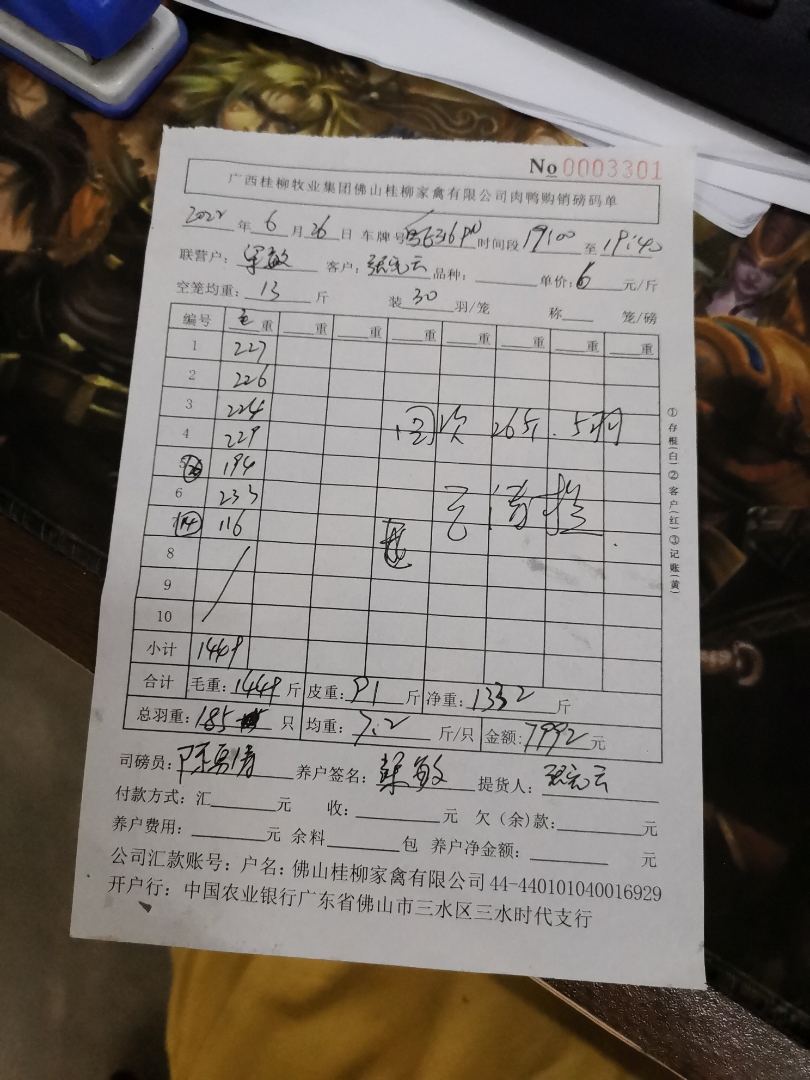 No 0003301
广西桂柳牧业集团佛山桂柳家禽有限公司肉鸭购销磅码单
2022年6月26日 车牌号 时间段 19:00 至 19:40
联营户: 敏 客户: 张云 品种: 单价: 6 元/斤
空笼均重: 13 斤 装 30 羽/笼 称 笼/磅
编号 毛重 重 重 重 重 重 重 重
1 227
2 226
3 224
4 229
5 194
6 233
7 14 116
8
9
10
次 26斤. 5羽
小计 1449
合计 毛重: 1449 斤 皮重: 91 斤 净重: 1332 斤
总羽重: 185 只 均重: 7.2 斤/只 金额: 7992 元
司磅员: 陈 养户签名: 敏 提货人: 云
付款方式: 汇 元 收: 元 欠(余)款: 元
养户费用: 元 余料 包 养户净金额: 元
公司汇款账号: 户名: 佛山桂柳家禽有限公司 44-440101040016929
开户行: 中国农业银行广东省佛山市三水区三水时代支行
①存根(白)②客户(红)③记账(黄)